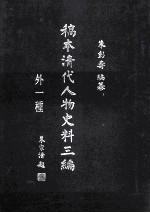 朱彭壽編纂
稿本清代人物史料三編
外一種